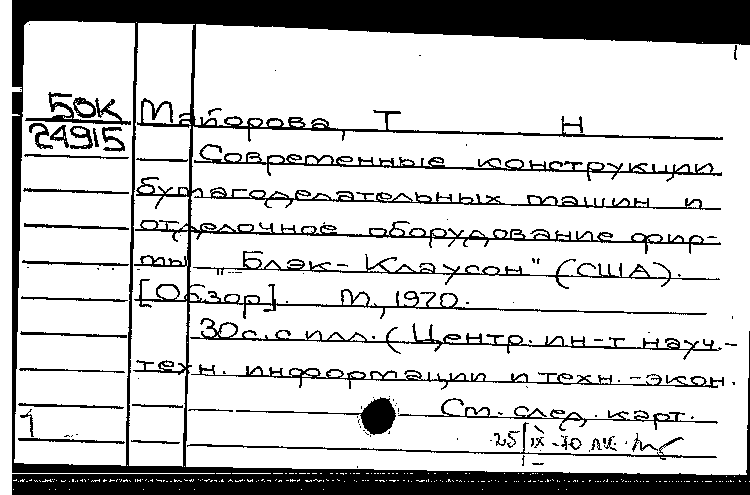 50К
24915
Майорова, Т Н
Современные конструкции
бумагоделательных машин и
отделочное оборудование фир-
мы "Блэк-Клаусон" (США).
[Обзор]. М., 1970.
30с. с илл. (Центр. ин-т науч.-
техн. информации и техн.-экон.
См. след. карт.
1
25/IX-70